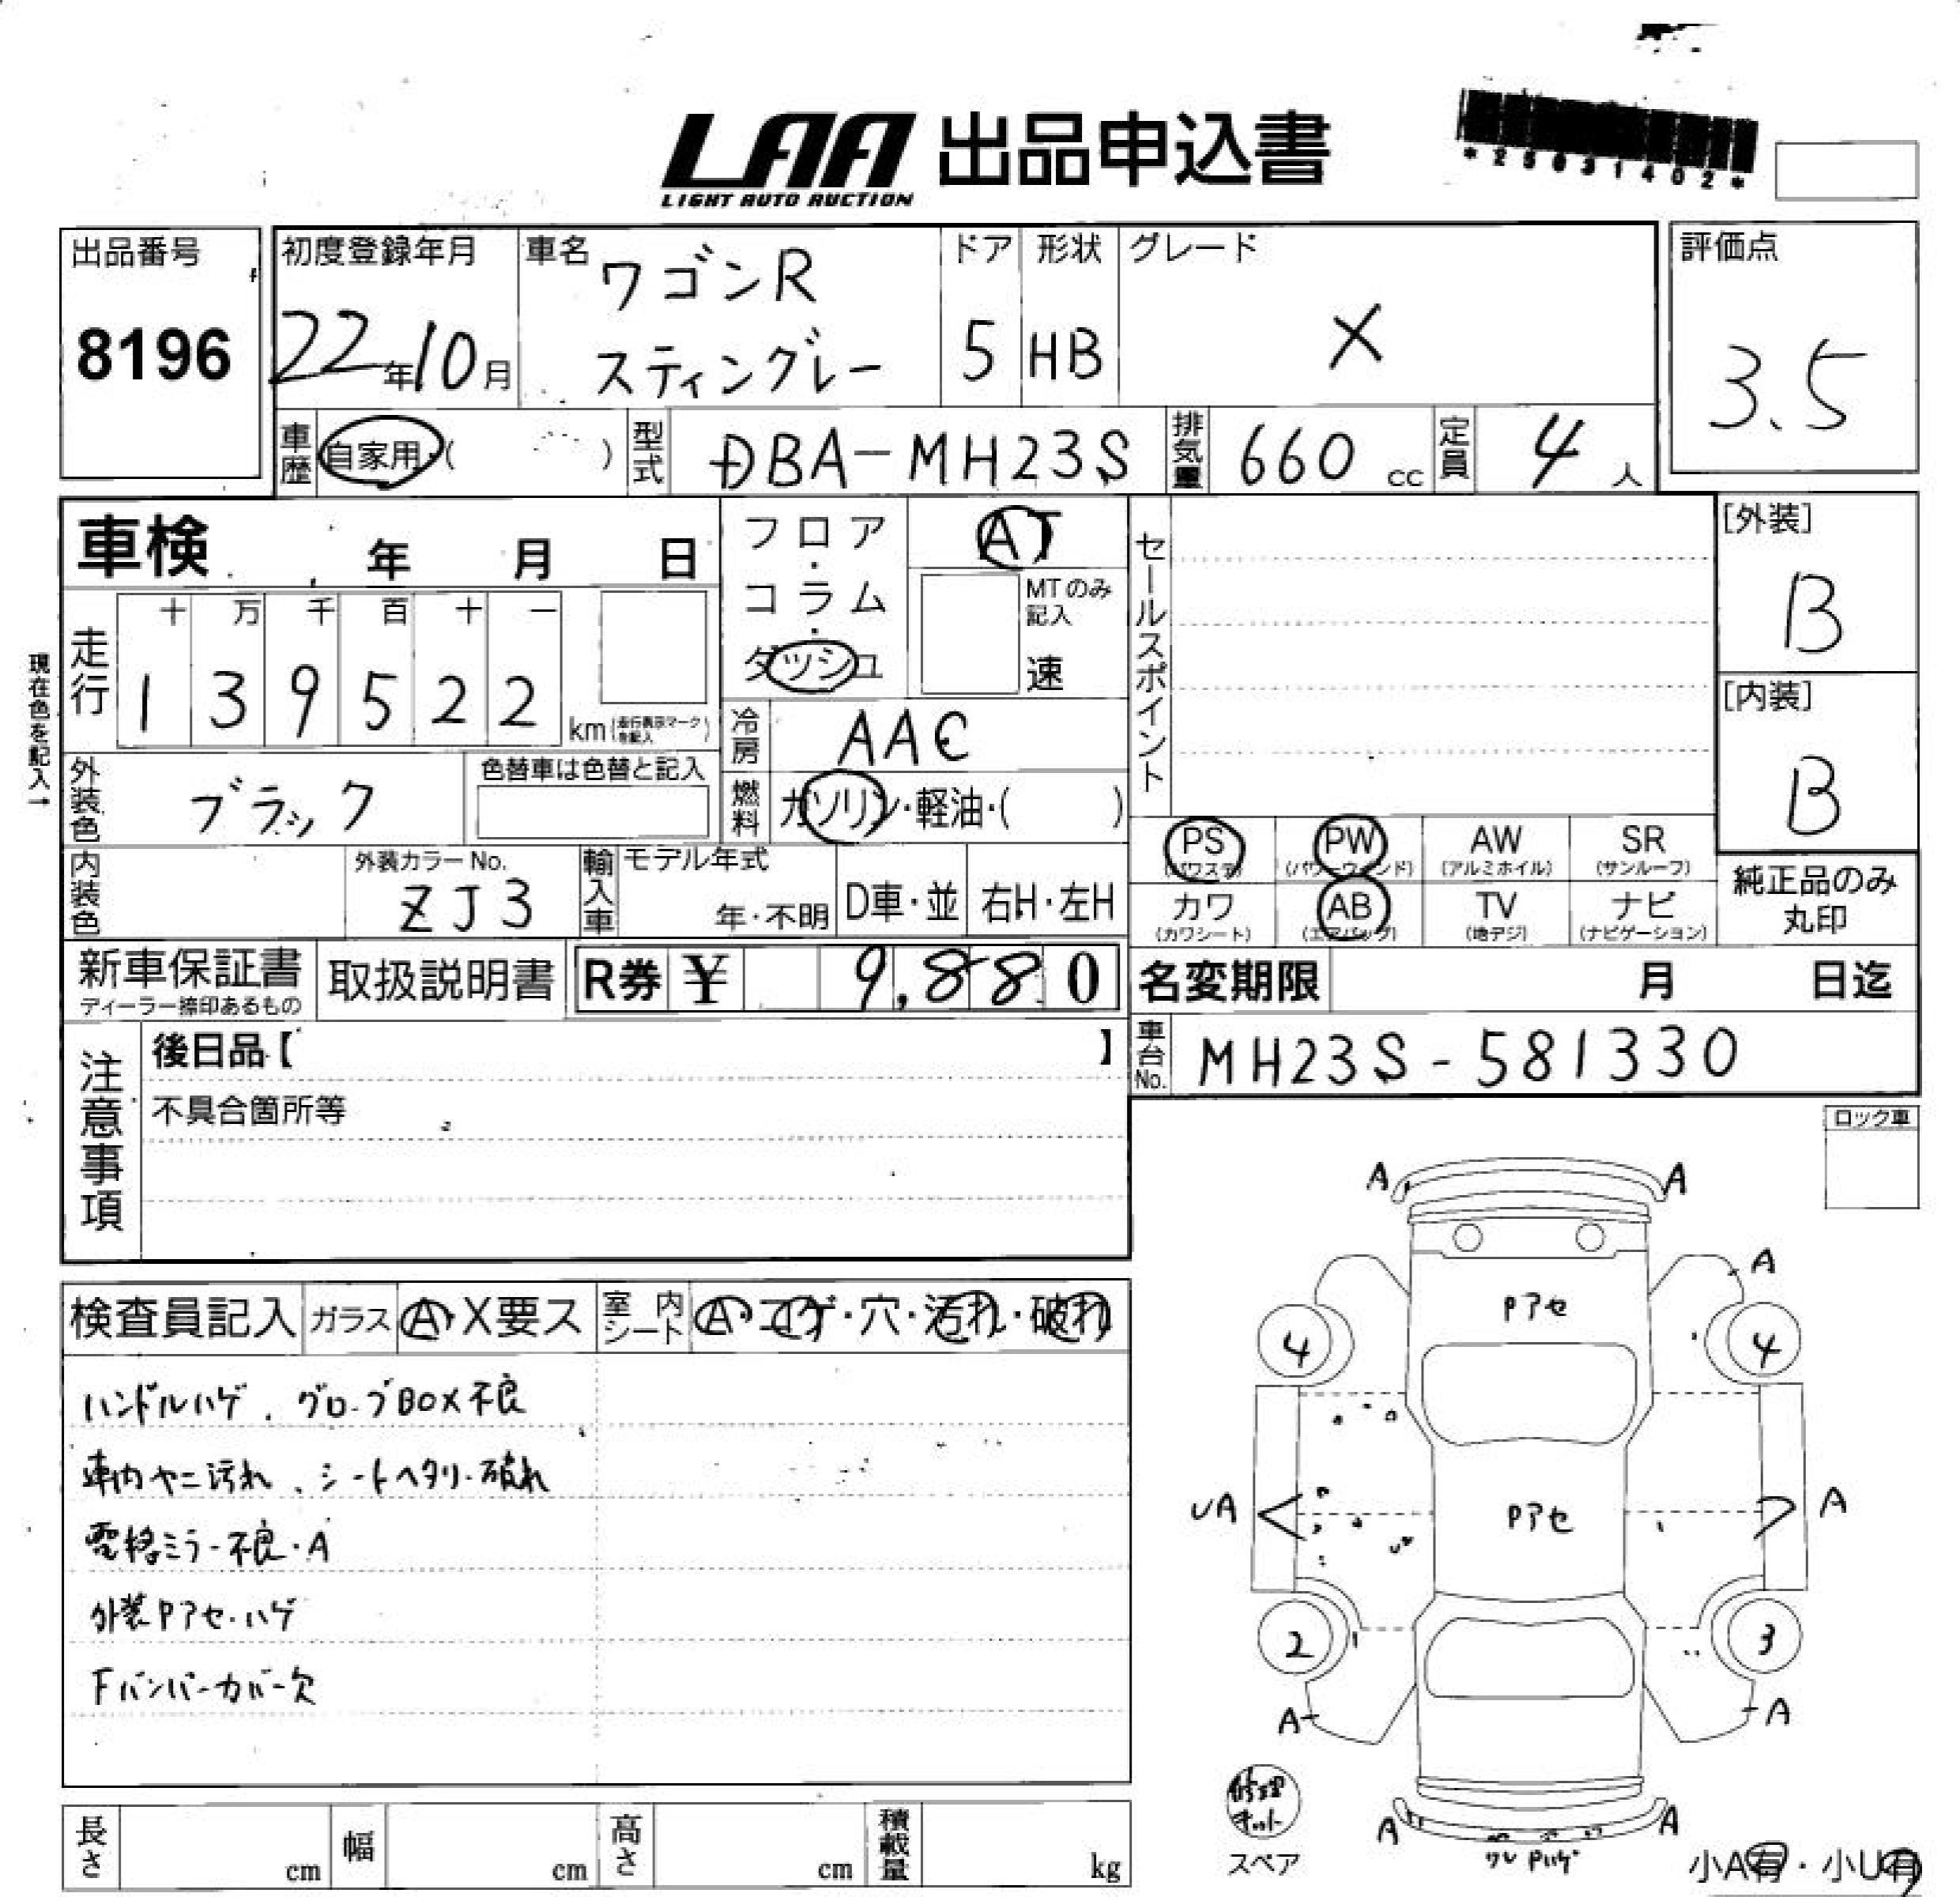 LAA 出品申込書
LIGHT AUTO AUCTION
*25031402*
出品番号
8196
初度登録年月
22年10月
車名
ワゴンR
スティングレー
ドア
5
形状
HB
グレード
X
評価点
3.5
車歴 自家用・( )
型式 DBA-MH23S
排気量 660 cc
定員 4 人
車検 年 月 日
フロア・コラム・ダッシュ
AT
MTのみ記入
速
セールスポイント
[外装]
B
[内装]
B
現在色を記入→
走行
十 万 千 百 十 一
1 3 9 5 2 2
km(走行表示マークを記入)
冷房 AAC
外装色 ブラック
色替車は色替と記入
燃料 ガソリン・軽油・( )
内装色
外装カラーNo.
ZJ3
輸入車
モデル年式
年・不明
D車・並
右H・左H
PS (パワステ)
PW (パワーウインド)
AW (アルミホイル)
SR (サンルーフ)
カワ (カワシート)
AB (エアバッグ)
TV (地デジ)
ナビ (ナビゲーション)
純正品のみ
丸印
新車保証書
ディーラー捺印あるもの
取扱説明書
R券 ¥ 9,880
名変期限 月 日迄
注意事項
後日品【 】
不具合箇所等
車台No. MH23S-581330
ロック車
検査員記入
ガラス A・X要ス
室内シート A・コゲ・穴・汚れ・破れ
ハンドルハゲ、グローブBOX不良
車内ヤニ汚れ、シートヘタリ・破れ
電格ミラー不良・A
外装Pアセ・ハゲ
Fバンパーカバー欠
A A
A
Pアセ
4 4
UA Pアセ A
2 3
A A
修理キット
スペア
A A
ワレ Pハゲ
小A有・小U有
長さ cm
幅 cm
高さ cm
積載量 kg